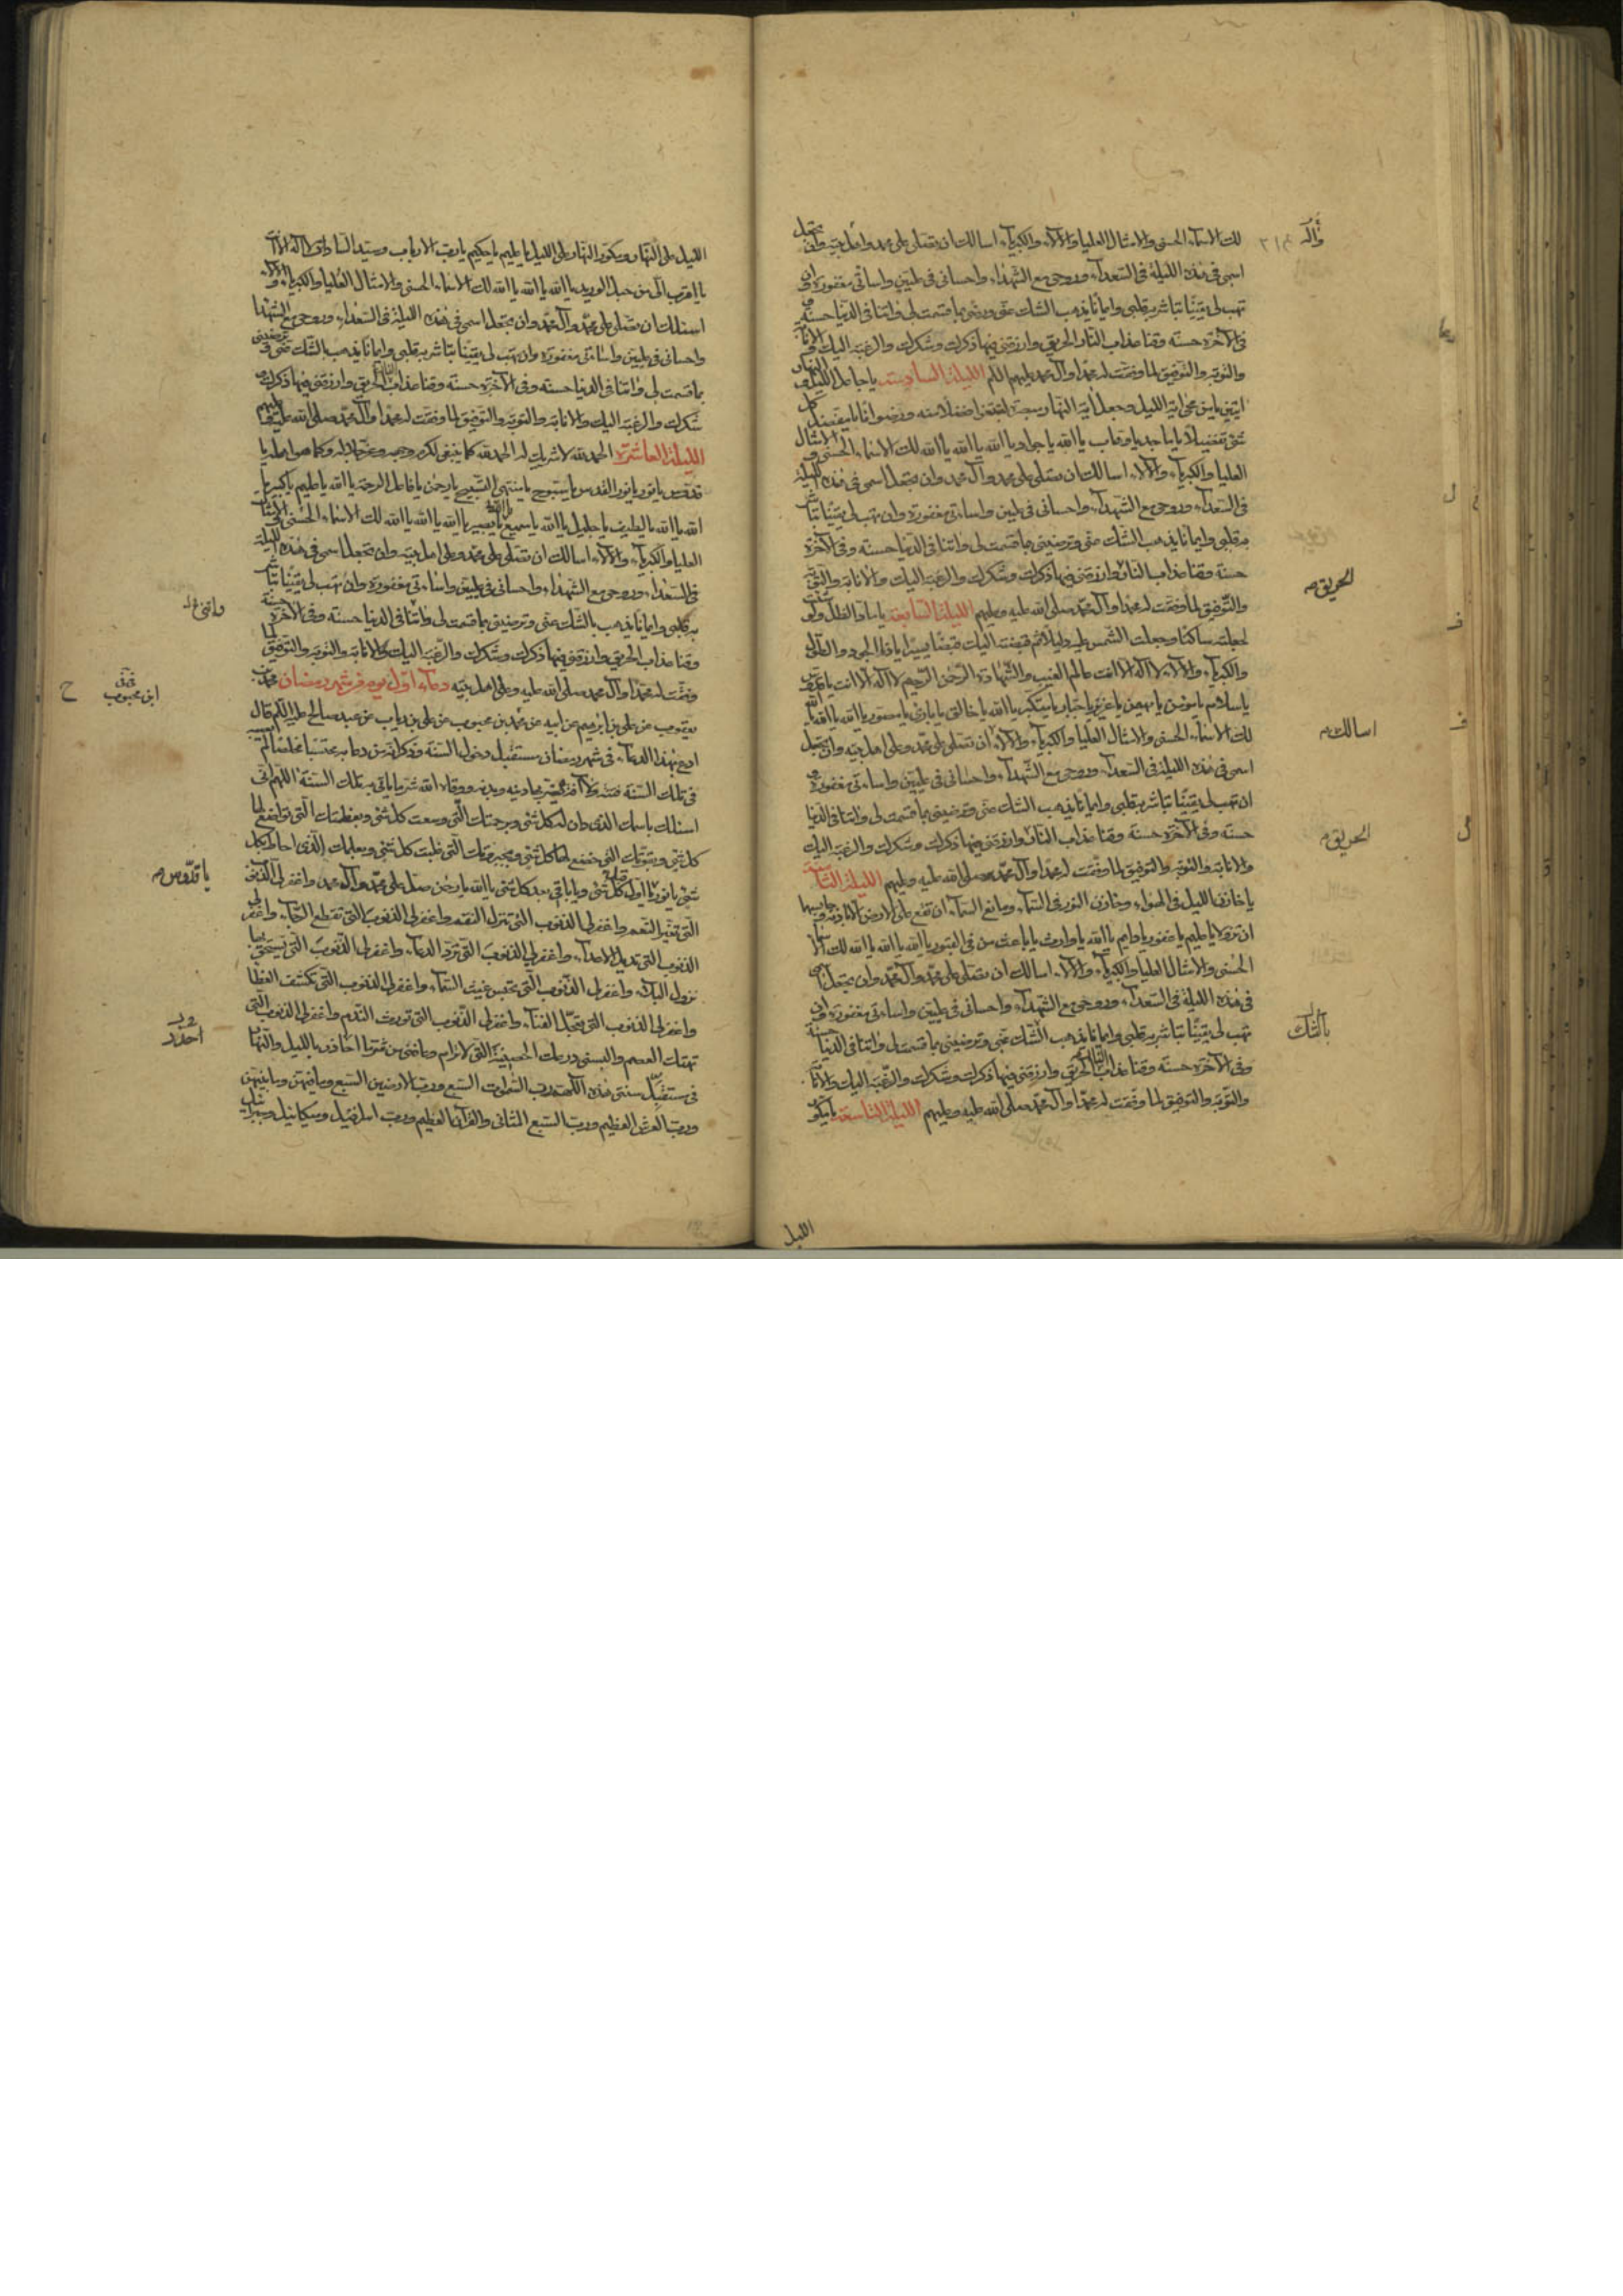 لك الاسماء الحسنى والامثال العليا والآلاء والكبرياء اسالك ان تصلى على محمد واهل بيته وان تجعل
اسمى فى هذه الليلة فى السعداء وروحى مع الشهداء واحسانى فى عليين واساءتى مغفورة وان
تهب لى يقينا تباشر به قلبى وايمانا يذهب الشك عنى ورضنى بما قسمت لى واتنا فى الدنيا حسنة و
فى الآخرة حسنة وقنا عذاب النار الحريق وارزقنى فيها ذكرك وشكرك والرغبة اليك والانابة
والتوبة والتوفيق لما وفقت له محمدا وآل محمد عليهم السلم الليلة السادسة يا جاعل الليل والنهار
ايتين يا من محا اية الليل وجعل اية النهار مبصرة لتبتغوا فضلا منه ورضوانا يا مفصل كل
شئ تفصيلا يا ماجد يا وهاب يا الله يا جواد يا الله يا الله يا الله لك الاسماء الحسنى والامثال
العليا والكبرياء والآلاء اسالك ان تصلى على محمد وآل محمد وان تجعل اسمى فى هذه الليلة
فى السعداء وروحى مع الشهداء واحسانى فى عليين واساءتى مغفورة وان تهب لى يقينا تباشر
به قلبى وايمانا يذهب الشك عنى وترضينى بما قسمت لى واتنا فى الدنيا حسنة وفى الآخرة
حسنة وقنا عذاب النار وارزقنى فيها ذكرك وشكرك والرغبة اليك والانابة والتوبة
والتوفيق لما وفقت له محمدا وآل محمد صلى الله عليه وعليهم الليلة السابعة يا ماد الظل ولو شئت
لجعلته ساكنا وجعلت الشمس عليه دليلا ثم قبضته اليك قبضا يسيرا يا ذا الجود والطول
والكبرياء والآلاء لا اله الا انت عالم الغيب والشهادة الرحمن الرحيم لا اله الا انت يا قدوس
يا سلام يا مؤمن يا مهيمن يا عزيز يا جبار يا متكبر يا الله يا خالق يا بارئ يا مصور يا الله يا الله يا الله
لك الاسماء الحسنى والامثال العليا والكبرياء والآلاء ان تصلى على محمد وعلى اهل بيته وان تجعل
اسمى فى هذه الليلة فى السعداء وروحى مع الشهداء واحسانى فى عليين واساءتى مغفورة و
ان تهب لى يقينا تباشر به قلبى وايمانا يذهب الشك عنى وترضينى بما قسمت لى واتنا فى الدنيا
حسنة وفى الآخرة حسنة وقنا عذاب النار وارزقنى فيها ذكرك وشكرك والرغبة اليك
والانابة والتوبة والتوفيق لما وفقت له محمدا وآل محمد صلى الله عليه وعليهم الليلة الثامنة
يا خازن الليل فى الهواء وخازن النور فى السماء ومانع السماء ان تقع على الارض الا باذنه وحابسهما
ان تزولا يا عليم يا غفور يا دايم يا الله يا وارث يا باعث من فى القبور يا الله يا الله يا الله لك الاسماء
الحسنى والامثال العليا والكبرياء والآلاء اسالك ان تصلى على محمد وآل محمد وان تجعل اسمى
فى هذه الليلة فى السعداء وروحى مع الشهداء واحسانى فى عليين واساءتى مغفورة وان
تهب لى يقينا تباشر به قلبى وايمانا يذهب الشك عنى وترضينى بما قسمت لى واتنا فى الدنيا حسنة
وفى الآخرة حسنة وقنا عذاب النار الحريق وارزقنى فيها ذكرك وشكرك والرغبة اليك والانابة
والتوبة والتوفيق لما وفقت له محمدا وآل محمد صلى الله عليه وعليهم الليلة التاسعة يا مكور
الليل
وآله
الحريق م
اسالك م
الحريق م
بالشك
الليل على النهار ومكور النهار على الليل يا عليم يا حكيم يا رب الارباب وسيد السادات لا اله الا انت
يا اقرب الى من حبل الوريد يا الله يا الله يا الله لك الاسماء الحسنى والامثال العليا والكبرياء والآلاء
اسئلك ان تصلى على محمد وآل محمد وان تجعل اسمى فى هذه الليلة فى السعداء وروحى مع الشهداء
واحسانى فى عليين واساءتى مغفورة وان تهب لى يقينا تباشر به قلبى وايمانا يذهب بالشك عنى وترضينى
بما قسمت لى واتنا فى الدنيا حسنة وفى الآخرة حسنة وقنا عذاب النار الحريق وارزقنى فيها ذكرك و
شكرك والرغبة اليك والانابة والتوبة والتوفيق لما وفقت له محمدا وآل محمد صلى الله عليه وعليهم
الليلة العاشرة الحمد لله لا شريك له الحمد لله كما ينبغى لكرم وجهه وعز جلاله وكما هو اهله يا
قدوس يا نور يا نور القدس يا سبوح يا منتهى التسبيح يا رحمن يا فاعل الرحمة يا الله يا عليم يا كبير يا
الله يا الله يا لطيف يا جليل يا الله يا سميع يا بصير يا الله يا الله يا الله لك الاسماء الحسنى والامثال
العليا والكبرياء والآلاء اسالك ان تصلى على محمد وعلى اهل بيته وان تجعل اسمى فى هذه الليلة
فى السعداء وروحى مع الشهداء واحسانى فى عليين واساءتى مغفورة وان تهب لى يقينا تباشر
به قلبى وايمانا يذهب بالشك عنى وترضينى بما قسمت لى واتنا فى الدنيا حسنة وفى الآخرة حسنة
وقنا عذاب الحريق وارزقنى فيها ذكرك وشكرك والرغبة اليك والانابة والتوبة والتوفيق لما
وفقت له محمدا وآل محمد صلى الله عليه وعلى اهل بيته دعاء اول يوم من شهر رمضان محمد بن
يعقوب عن على بن ابرهيم عن ابيه عن محمد بن محبوب عن على بن رياب عن عبد صالح عليه السلم قال
ادع بهذا الدعاء فى شهر رمضان مستقبل دخول السنة وذكر انه من دعا به محتسبا مخلصا لم تصبه
فى تلك السنة فتنة ولا آفة يضر بها دينه وبدنه ووقاه الله شر ما ياتى به تلك السنة اللهم انى
اسئلك باسمك الذى دان له كل شئ وبرحمتك التى وسعت كل شئ وبعظمتك التى تواضع لها
كل شئ وبقوتك التى خضع لها كل شئ وبجبروتك التى غلبت كل شئ وبعلمك الذى احاط بكل
شئ يا نور يا اول قبل كل شئ ويا باقى بعد كل شئ يا الله يا رحمن صل على محمد وآل محمد واغفر لى الذنوب
التى تغير النعم واغفر لى الذنوب التى تنزل النقم واغفر لى الذنوب التى تقطع الرجاء واغفر لى
الذنوب التى تديل الاعداء واغفر لى الذنوب التى ترد الدعاء واغفر لى الذنوب التى يستحق بها
نزول البلاء واغفر لى الذنوب التى تحبس غيث السماء واغفر لى الذنوب التى تكشف الغطا
واغفر لى الذنوب التى تعجل الفناء واغفر لى الذنوب التى تورث الندم واغفر لى الذنوب التى
تهتك العصم والبسنى درعك الحصينة التى لا ترام وعافنى من شر ما احاذر بالليل والنهار
فى مستقبل سنتى هذه اللهم رب السموات السبع ورب الارضين السبع وما فيهن وما بينهن
ورب العرش العظيم ورب السبع المثانى والقرآن العظيم ورب اسرافيل وميكائيل وجبرائيل
ابن محبوب
يا قدوس م